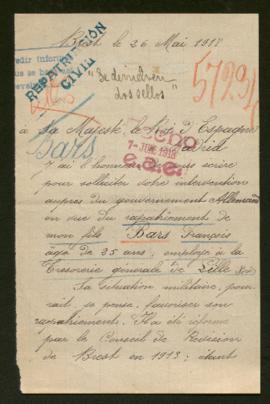 Brest le 26 Mai 1918
REPATRIACIÓN
CIVIL
5729
7 - JUN. 1918
a Sa Majesté le Roi d'Espagne
Bars
J'ai l'honneur de vous écrire
pour solliciter votre intervention
auprès du gouvernement Allemand
en vue du rapatriement de
mon fils Bars François
âgé de 25 ans, employé à la
Trésorerie générale de Lille Nord
Sa situation militaire, pour
rait, je pense, favoriser son
rapatriement. Il a été réformé
par le Conseil de Révision
de Brest en 1913; étant